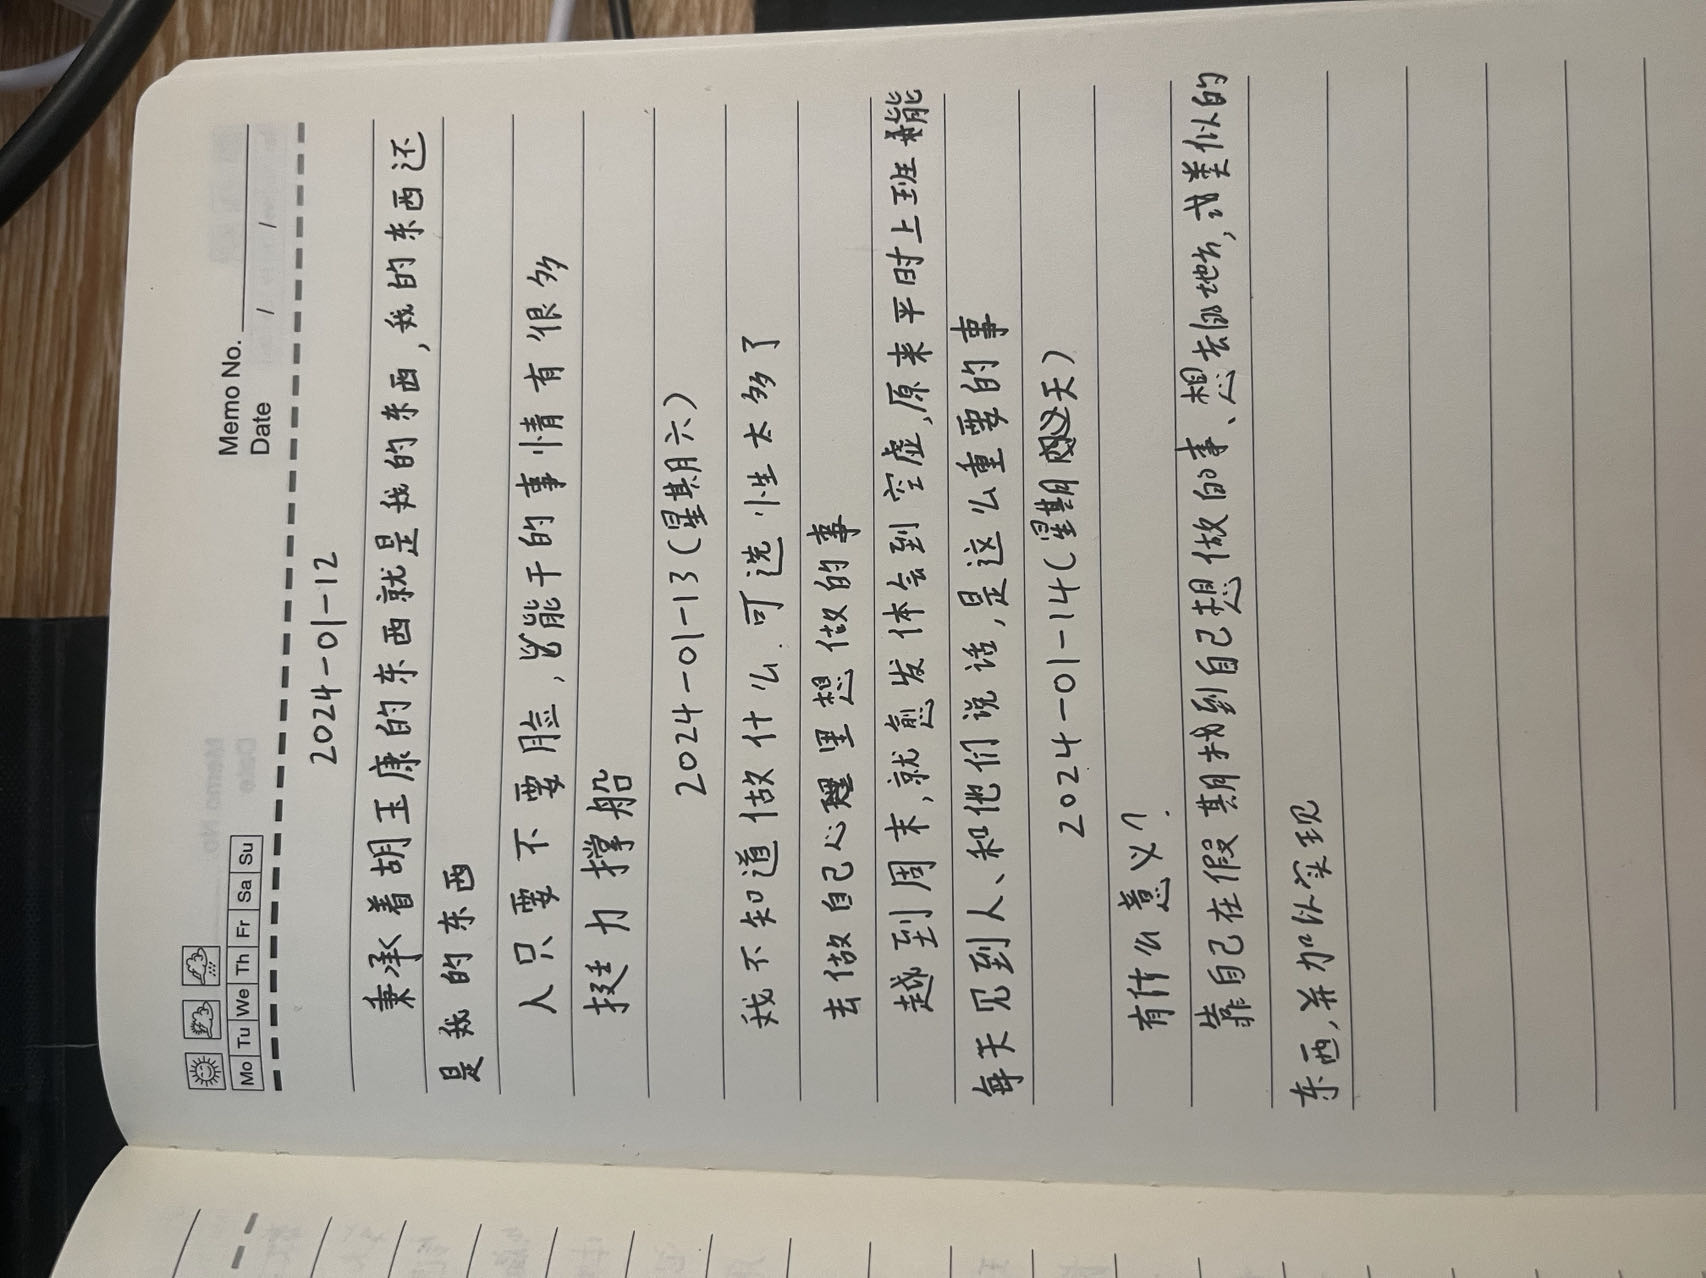 Mo Tu We Th Fr Sa Su
Memo No.
Date / /
2024-01-12
秉承着胡玉康的东西就是我的东西,我的东西还
是我的东西
人只要不要脸,能干的事情有很多
挺力撑船
2024-01-13(星期六)
我不知道做什么.可选性太多了
去做自己心里想做的事
越到周末,就愈发体会到空虚,原来平时上班能
每天见到人、和他们说话,是这么重要的事
2024-01-14(星期天)
有什么意义?
靠自己在假期找到自己想做的事、想去的地方,或类似的
东西,并加以实现